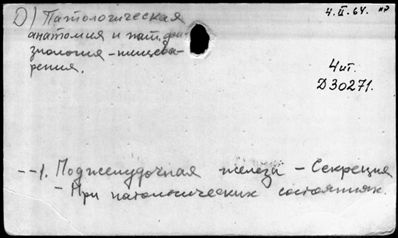 D) Патологическая
анатомия и пат. фи-
зиология - пищева-
рения.
4.II.64. нр
Чит.
D30271.
--1. Поджелудочная железа - Секреция
- При патологических состояниях.